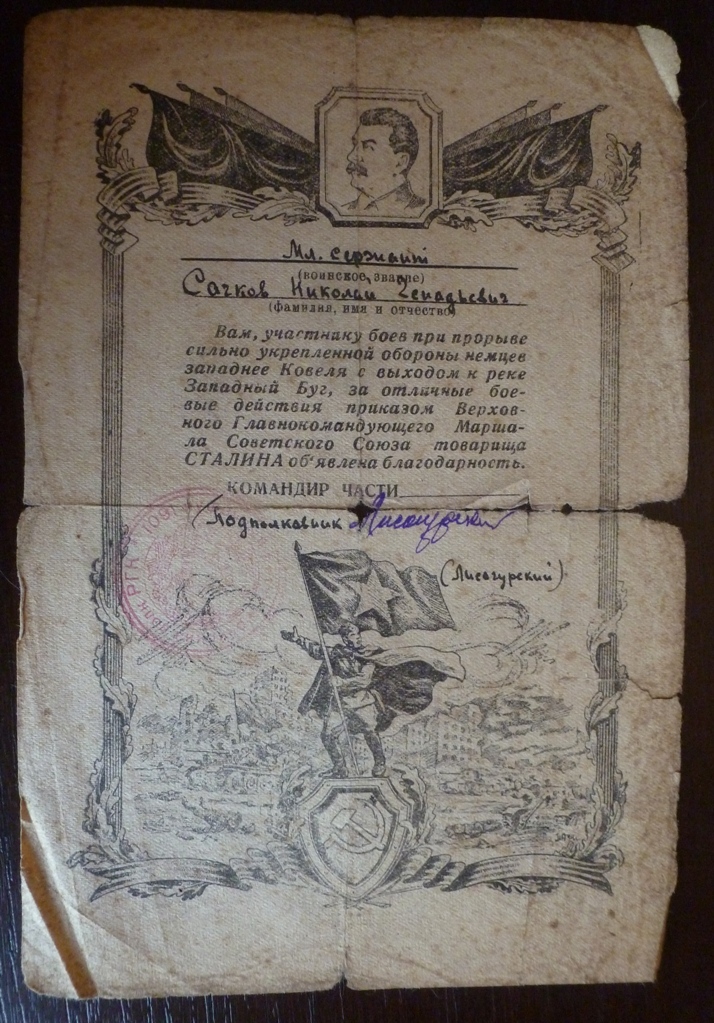 Мл. сержант
(воинское звание)
Сачков Николай Генадьевич
(фамилия, имя и отчество)
Вам, участнику боев при прорыве
сильно укрепленной обороны немцев
западнее Ковеля с выходом к реке
Западный Буг, за отличные бое-
вые действия приказом Верхов-
ного Главнокомандующего Марша-
ла Советского Союза товарища
СТАЛИНА об'явлена благодарность.
КОМАНДИР ЧАСТИ
Подполковник
(Лисогурский)